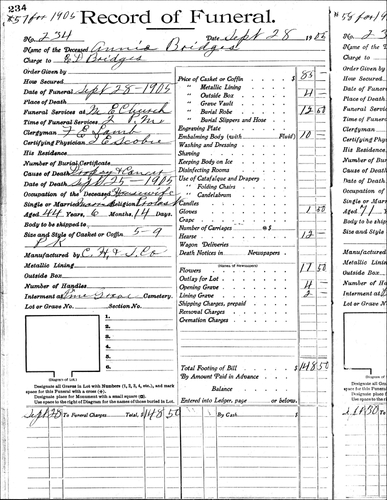 234
#57 for 1905
Record of Funeral.
No. 234 Date Sept 28 1905
Name of the Deceased Annie Bridges
Charge to Bridges
Order Given by
How Secured
Date of Funeral Sept 28-1905
Place of Death
Funeral Services at M E Church
Time of Funeral Services 2 P.M.
Clergyman F E Lamb
Certifying Physician Scobie
His Residence
Number of Burial Certificate
Cause of Death Dropsy & Cancer
Date of Death Sept 25-1905
Occupation of the Deceased Housewife
Single or Married Religion
Aged 44 Years, 6 Months, 14 Days.
Body to be shipped to
Size and Style of Casket or Coffin 5-9
P K
Manufactured by C. H. & J. Co
Metallic Lining
Outside Box
Number of Handles
Interment at Pine Grove Cemetery.
Lot or Grave No. Section No.
1.
2.
3.
4.
5.
6.
(Diagram of Lot.)
Designate all Graves in Lot with Numbers (1, 2, 3, 4, etc.), and mark
space for this Funeral with a cross (+).
Designate place for Monument with a small square (□).
Use space to the right of Diagram for the names of those buried in Lot.
Price of Casket or Coffin $ 85 -
" Metallic Lining
" Outside Box 4 -
" Grave Vault
" Burial Robe 12 50
" Burial Slippers and Hose
Engraving Plate
Embalming Body (with Fluid) 10 -
Washing and Dressing
Shaving
Keeping Body on Ice
Disinfecting Rooms
Use of Catafalque and Drapery
" Folding Chairs
" Candelabrum
Candles
Gloves 1 50
Crape
Number of Carriages @ $
Hearse 12 -
Wagon Deliveries
Death Notices in Newspapers
(Names of Newspapers)
Flowers 17 50
Outlay for Lot
Opening Grave 4 -
Lining Grave 2 -
Shipping Charges, prepaid
Removal Charges
Cremation Charges
Total Footing of Bill $ 148 50
By Amount Paid in Advance
Balance
Entered into Ledger, page or below.
Sept 28 To Funeral Charges Total, $ 148 50 By Cash $